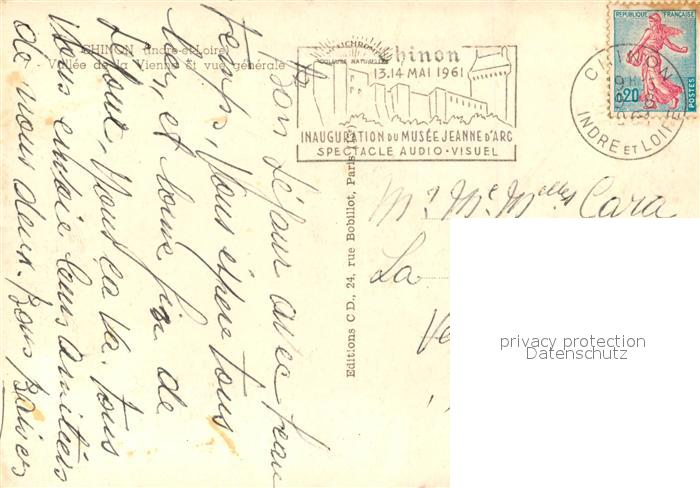 CHINON (Indre-et-Loire)
Vallée de la Vienne et vue générale
Bon séjour avec beau
temps. Vous espère tous
bien, et bonne fin de
Août, Nous ça va. Tous
Vous envoie leurs amitiés
de nous deux. Bons Baisers
Editions C D., 24, rue Bobillot, Paris
Chinon
13.14 MAI 1961
INAUGURATION DU MUSÉE JEANNE D'ARC
SPECTACLE AUDIO-VISUEL
REPUBLIQUE FRANÇAISE
0,20
POSTES
CHINON
INDRE ET LOIRE
Mr Me Melles Cara
La
privacy protection
Datenschutz